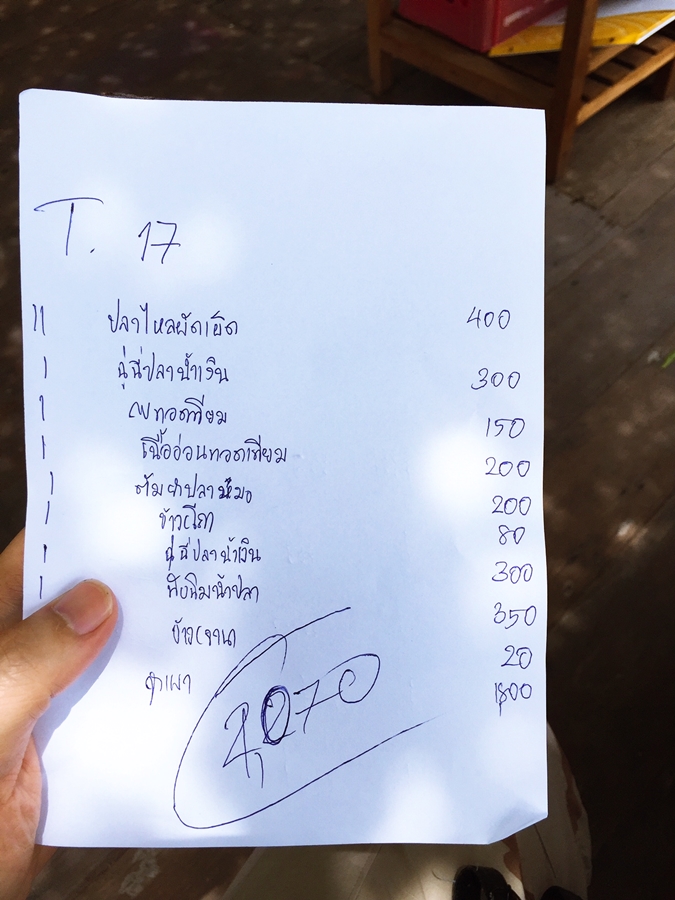 T. 17
11 ปลาไหลผัดเผ็ด 400
1 ฉู่ฉี่ปลาน้ำเงิน 300
1 กบทอดเทียม 150
1 เนื้ออ่อนทอดเทียม 200
1 ต้มยำปลาหมอ 200
1 ข้าวโถ 80
1 ฉู่ฉี่ปลาน้ำเงิน 300
1 นิ่มน้ำปลา 350
ข้าวจาน 20
เผา
2,070